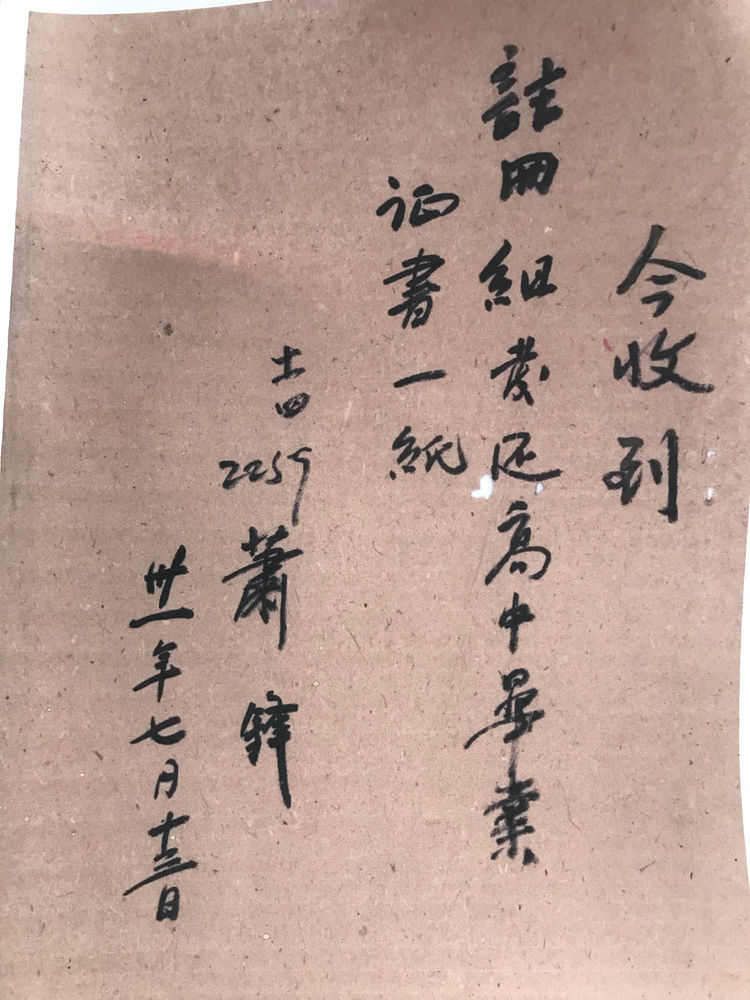 今收到
註冊組發还高中畢業
证書一紙
土四 2259 蕭鋒
卅一年七月十三日